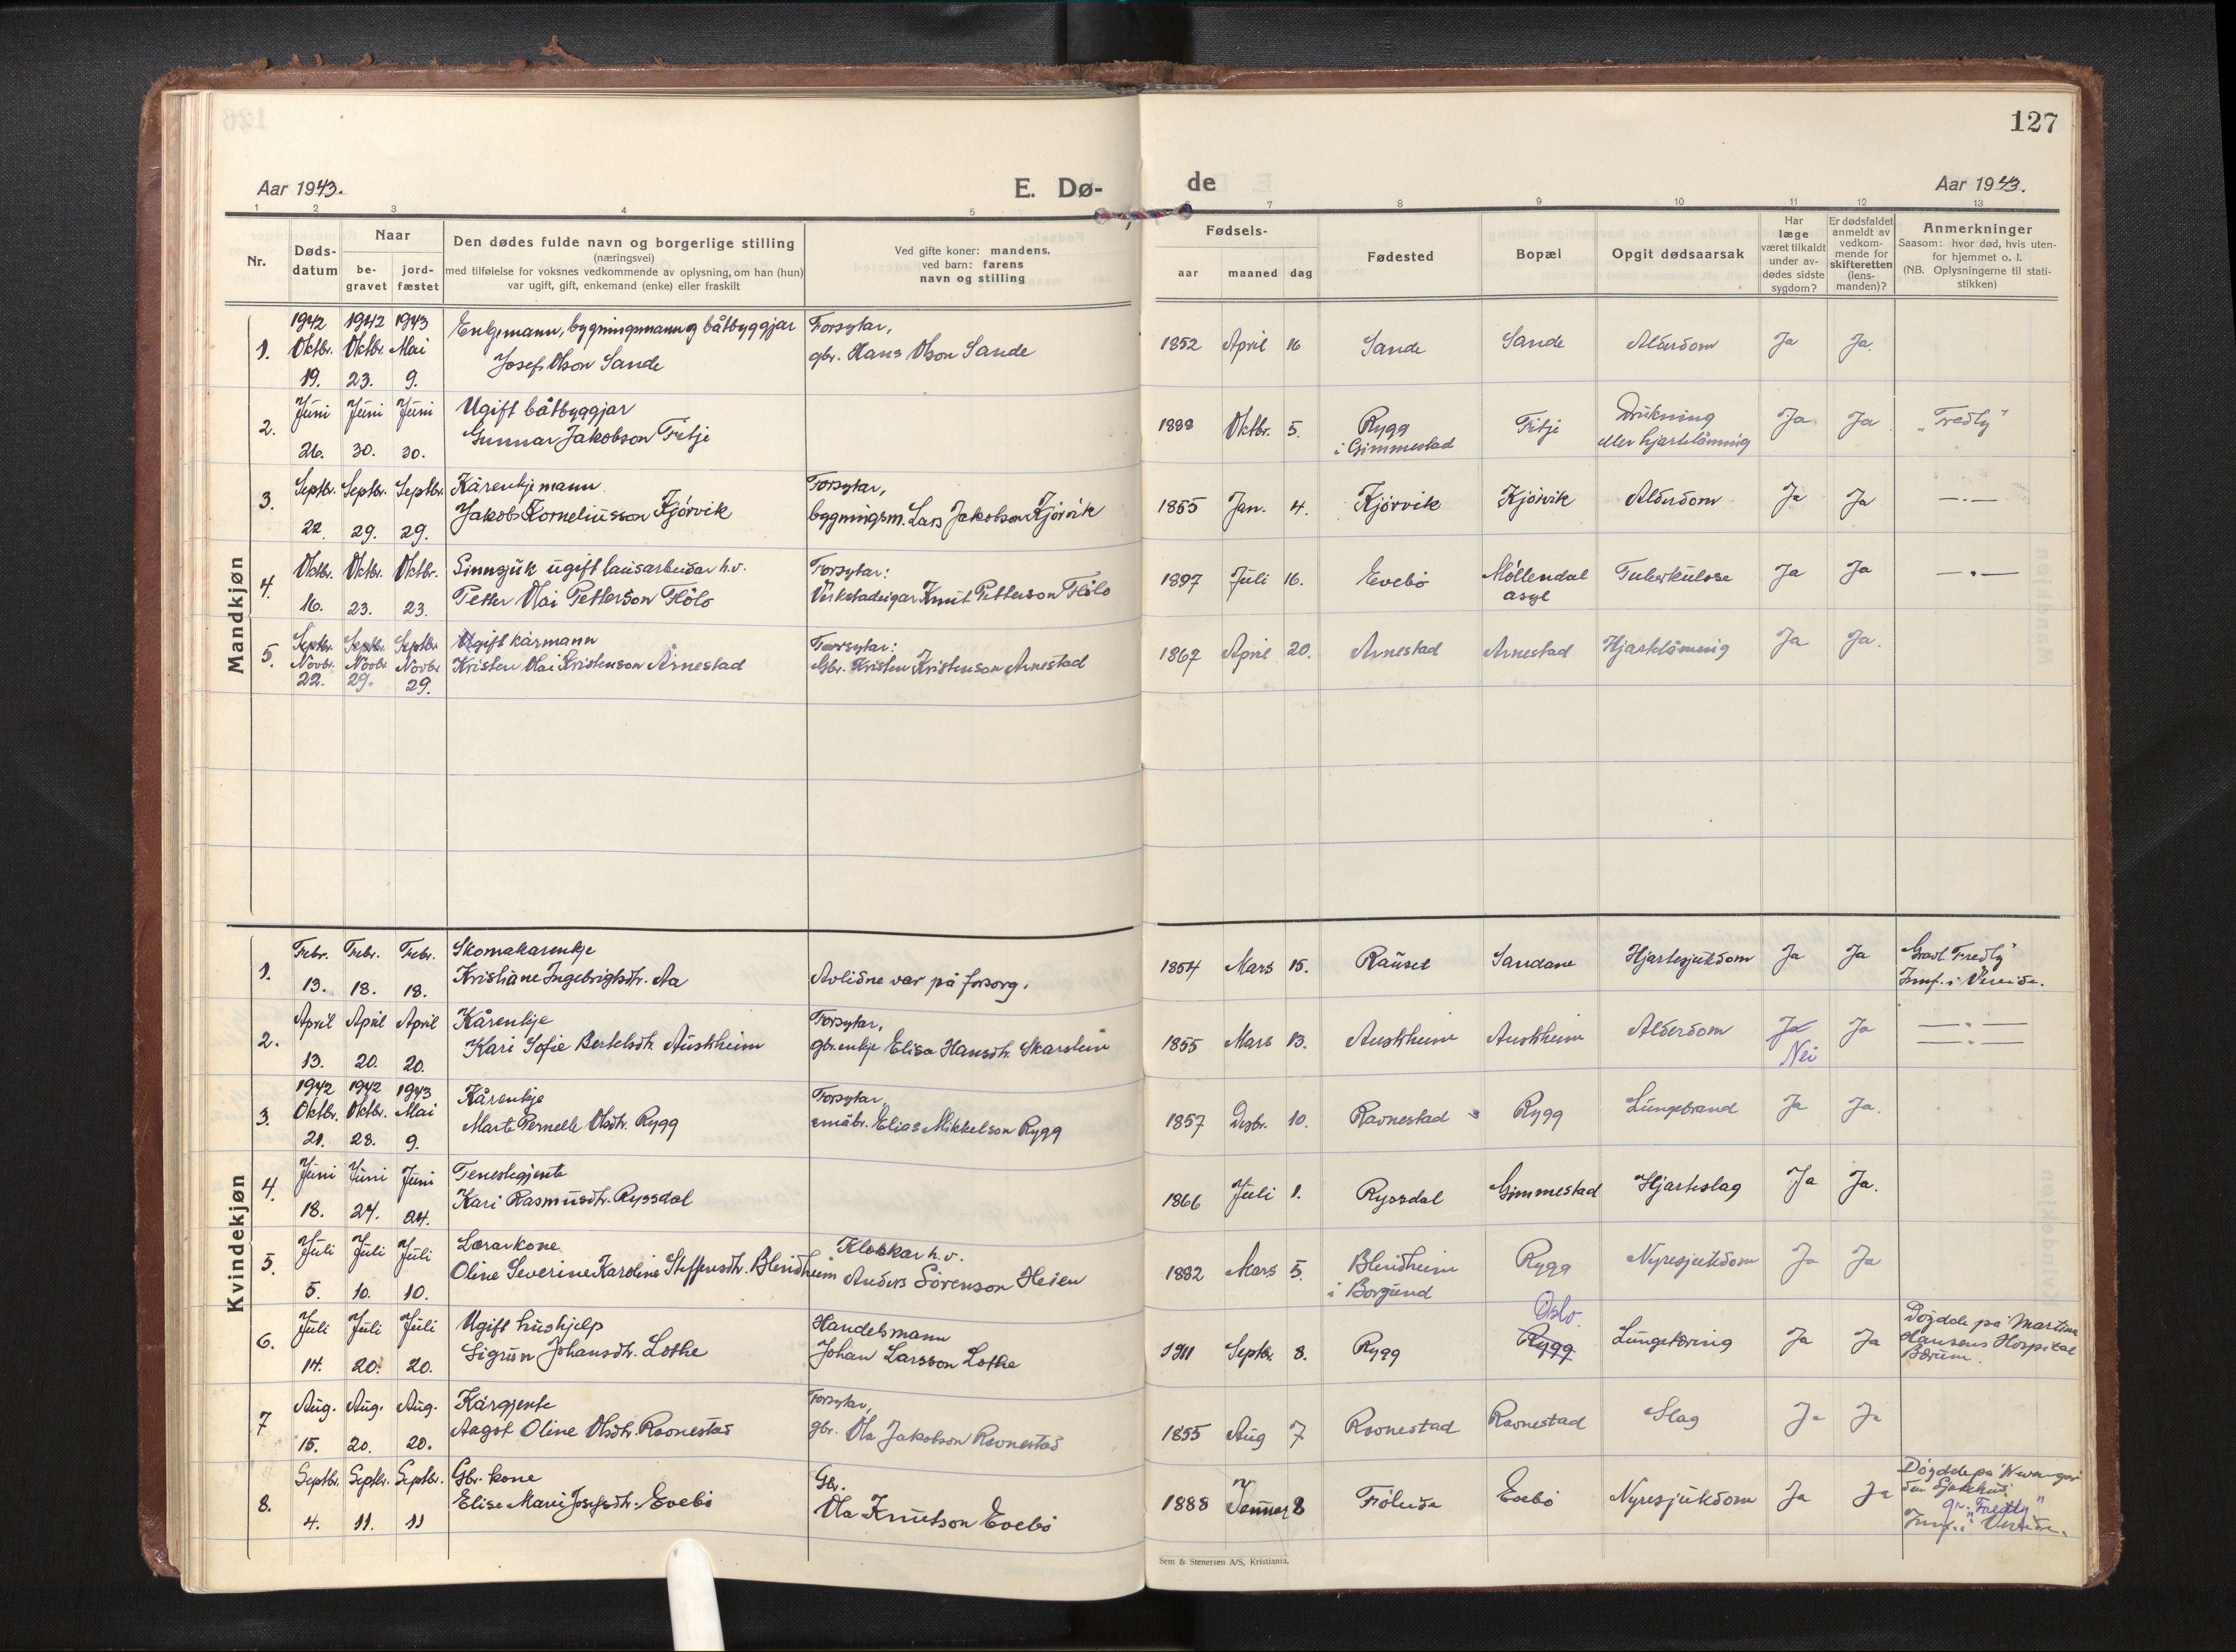 127
Aar 1943.
E. Dø-
de
Aar 1943.
1 2 3 4 5 7 8 9 10 11 12 13
Nr.
Døds-
datum
Naar
be-
gravet
jord-
fæstet
Den dødes fulde navn og borgerlige stilling
(næringsvei)
med tilføielse for voksnes vedkommende av oplysning, om han (hun)
var ugift, gift, enkemand (enke) eller fraskilt
Ved gifte koner: mandens,
ved barn: farens
navn og stilling
Fødsels-
aar maaned dag
Fødested
Bopæl
Opgit dødsaarsak
Har
læge
været tilkaldt
under av-
dødes sidste
sygdom?
Er dødsfaldet
anmeldt av
vedkom-
mende for
skifteretten
(lens-
manden)?
Anmerkninger
Saasom: hvor død, hvis uten-
for hjemmet o. l.
(NB. Oplysningerne til stati-
stikken)
Mandkjøn
1.
1942 1942 1943
Oktbr. Oktbr. Mai
19. 23. 9.
Enkjemann, bygningsmann og båtbyggjar
Josef Olson Sande
Forsytar,
gbr. Hans Olson Sande
1852 April 16 Sande Sande Alderdom Ja Ja.
2.
Juni Juni Juni
26. 30. 30.
Ugift båtbyggjar
Gunnar Jakobson Fitje
1888 Oktbr. 5. Rygg
i Gimmestad
Fitje
Drukning
eller hjartelåmning
Ja Ja "Fredly"
3.
Septbr. Septbr. Septbr.
22. 29. 29.
Kårenkjemann
Jakob Korneliusson Kjórvik
Forsytar,
bygningsm. Lars Jakobson Kjórvik
1855 Jan. 4. Kjórvik Kjórvik Alderdom Ja Ja —.—
4.
Oktbr. Oktbr. Oktbr.
16. 23. 23.
Sinnsjuk ugift lausarbeidar h.v.
Petter Olai Petterson Flólo
Forsytar:
Verkstadeigar Knut Petterson Flólo
1897 Juli 16. Evebó Móllendal
asyl
Tuberkulose Ja Ja —.—
5.
Septbr. Septbr. Septbr.
Novbr. Novbr. Novbr.
22. 29. 29.
Ugift kårmann
Kristen Olai Kristenson Arnestad
Forsytar:
Gbr. Kristen Kristenson Arnestad
1867 April 20. Arnestad Arnestad Hjartelåmning Ja Ja.
Kvindekjøn
1.
Febr. Febr. Febr.
13. 18. 18.
Skomakarenkje
Kristiane Ingebrigtsdtr. Aa
Avlidne var på forsorg.
1854 Mars 15. Raüset Sandane Hjartesjukdom Ja Ja
Gravl. "Fredly"
Innf. i Vereide.
2.
April April April
13. 20. 20.
Kårenkje
Kari Sofie Bertelsdtr. Austrheim
Forsytar,
gbr.enkje Elisa Hansdtr. Skarstein
1855 Mars 13. Austrheim Austrheim Alderdom Ja Ja
Nei
—.—
—.—
3.
1942 1942 1943
Oktbr. Oktbr. Mai
21. 28. 9.
Kårenkje
Marte Pernelle Olsdtr. Rygg
Forsytar,
småbr. Elias Mikkelson Rygg
1857 Desbr. 10. Ravnestad Rygg Lungebrand Ja Ja.
4.
Juni Juni Juni
18. 24. 24.
Tenestegjente
Kari Rasmusdtr. Ryssdal
1866 Juli 1. Ryssdal Gimmestad Hjarteslag Ja Ja.
5.
Juli Juli Juli
5. 10. 10.
Lærarkone
Oline Severine Karoline Steffensdtr. Blindheim
Klokkar h.v.
Anders Sórenson Heien
1882 Mars 5. Blindheim
i Borgund
Rygg Nyresjukdom Ja Ja
6.
Juli Juli Juli
14. 20. 20.
Ugift hushjelp
Sigrun Johansdtr. Lothe
Handelsmann
Johan Larsson Lothe
1911 Septbr. 8. Rygg
Oslo.
Rygg
Lungetæring Ja Ja
Dóydde på Martina
Hansens Hospital
Bærum.
7
Aug. Aug. Aug.
15. 20. 20.
Kårgjente
Aagot Oline Olsdtr. Ravnestad
Forsytar,
gbr. Ola Jakobson Ravnestad
1855 Aug 7 Ravnestad Ravnestad Slag Ja Ja
8.
Septbr. Septbr. Septbr.
4. 11. 11
Gbr. kone
Elise Marie Josefsdtr. Evebó
Gbr.
Ola Knutson Evebó
1888 Januar 8 Fióleide Evebó Nyresjukdom Ja Ja
Dóydde på
gr. "Fredly"
Innf. i Vereide.
Sem & Stenersen A/S, Kristiania.